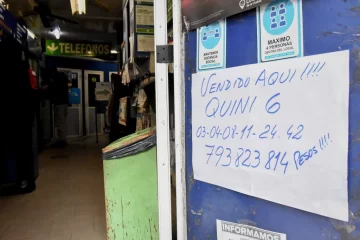 TELEFONOS
MAXIMO
4 PERSONAS
VENDIDO AQUI !!!!
QUINI 6
03-04-08-11-24.42
793823814 PESOS!!!!
INFORMAMOS